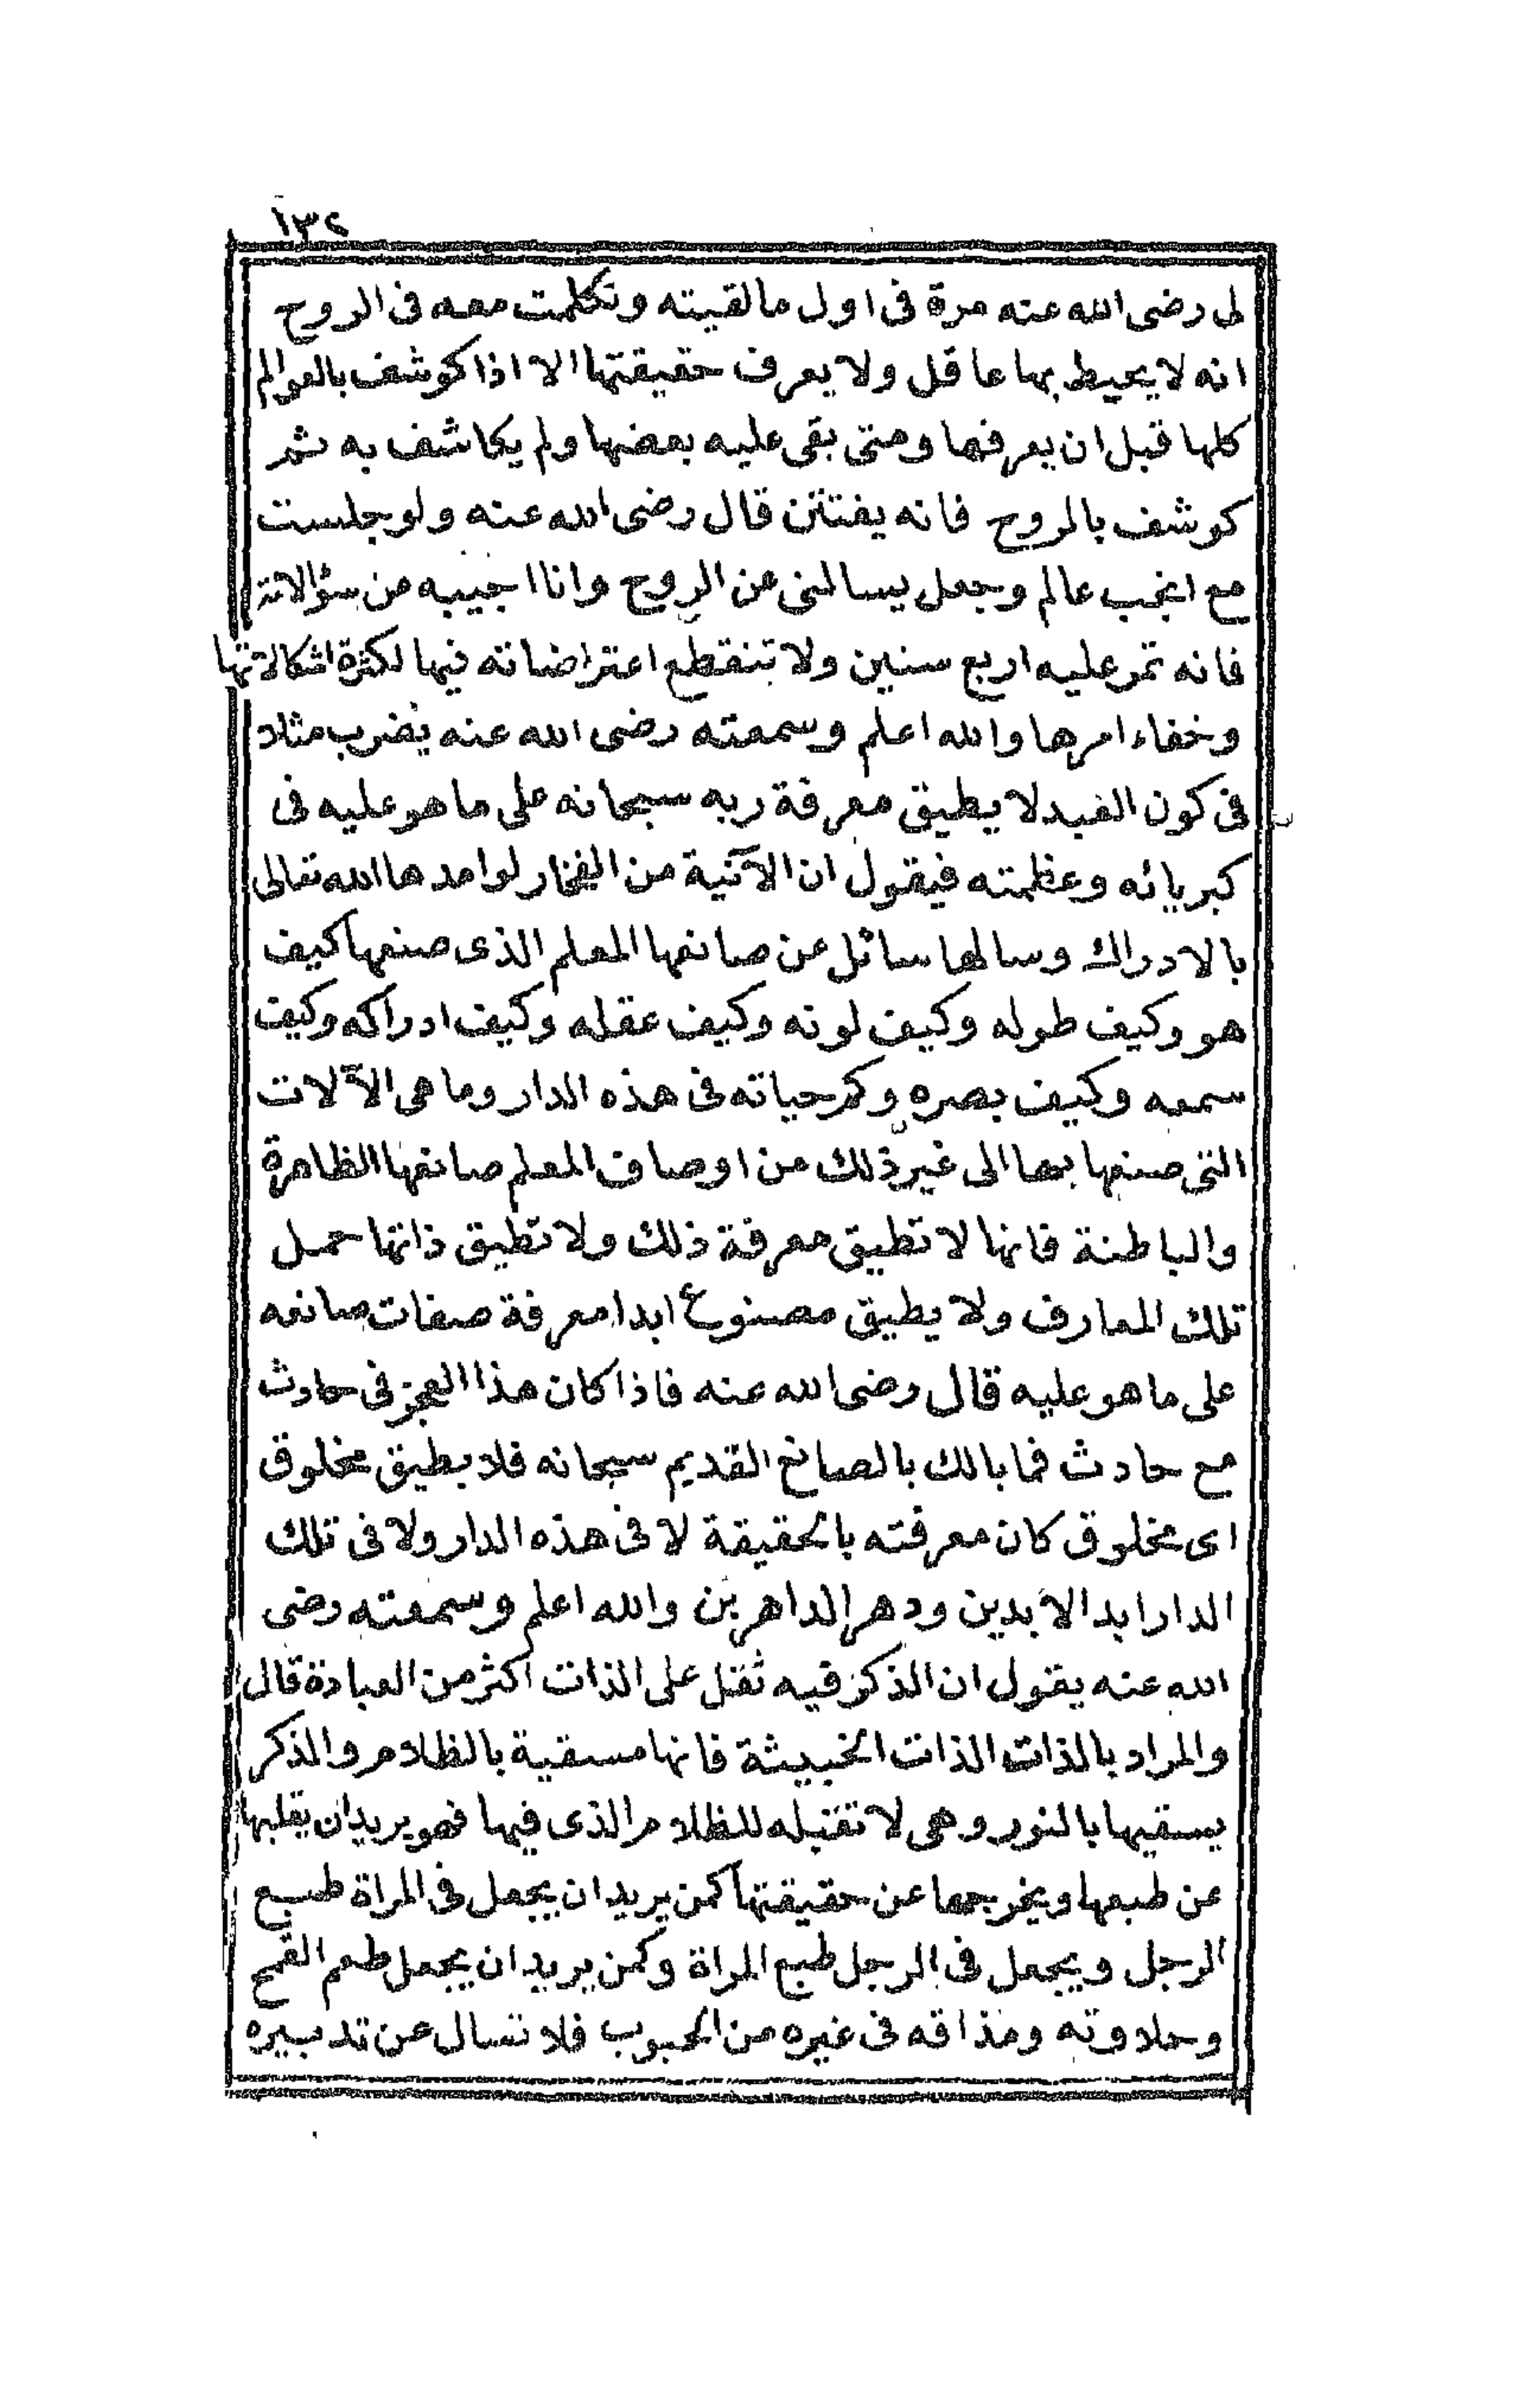 ١٣٢
لى رضى الله عنه مرة فى اول ما لقيته وتكلمت معه فى الروح
انه لا يحيط بها عاقل ولا يعرف حقيقتها الا اذا كوشف بالعوالم
كلها قبل ان يعرفها ومتى بقى عليه بعضها ولم يكاشف به ثم
كوشف بالروح فانه يفتتن قال رضى الله عنه ولو جلست
مع انجب عالم وجعل يسالنى عن الروح وانا اجيبه من سؤالاته
فانه تمر عليه اربع سنين ولا تنقطع اعتراضاته فيها لكثرة اشكالاتها
وخفاء امرها والله اعلم وسمعته رضى الله عنه يضرب مثلا
فى كون العبد لا يطيق معرفة ربه سبحانه على ما هو عليه فى
كبريائه وعظمته فيقول ان الآنية من الفخار لو امدها الله تعالى
بالادراك وسالها سائل عن صانعها المعلم الذى صنعها كيف
هو وكيف طوله وكيف لونه وكيف عقله وكيف ادراكه وكيف
سمعه وكيف بصره وكم حياته فى هذه الدار وما هى الآلات
التى صنعها بها الى غير ذلك من اوصاف المعلم صانعها الظاهرة
والباطنة فانها لا تطيق معرفة ذلك ولا تطيق ذاتها حمل
تلك المعارف ولا يطيق مصنوع ابدا معرفة صفات صانعه
على ما هو عليه قال رضى الله عنه فاذا كان هذا العجز فى حادث
مع حادث فما بالك بالصانع القديم سبحانه فلا يطيق مخلوق
اى مخلوق كان معرفته بالحقيقة لا فى هذه الدار ولا فى تلك
الدار ابد الآبدين ودهر الداهرين والله اعلم وسمعته رضى
الله عنه يقول ان الذكر فيه ثقل على الذات اكثر من العبادة قال
والمراد بالذات الذات الخبيثة فانها مسقية بالظلام والذكر
يسقيها بالنور وهى لا تقبله للظلام الذى فيها فهو يريد ان يقلبها
عن طبعها ويخرجها عن حقيقتها كمن يريد ان يجعل فى المراة طبع
الرجل ويجعل فى الرجل طبع المراة وكمن يريد ان يجعل طعم القمح
وحلاوته ومذاقه فى غيره من الحبوب فلا تسال عن تدبيره